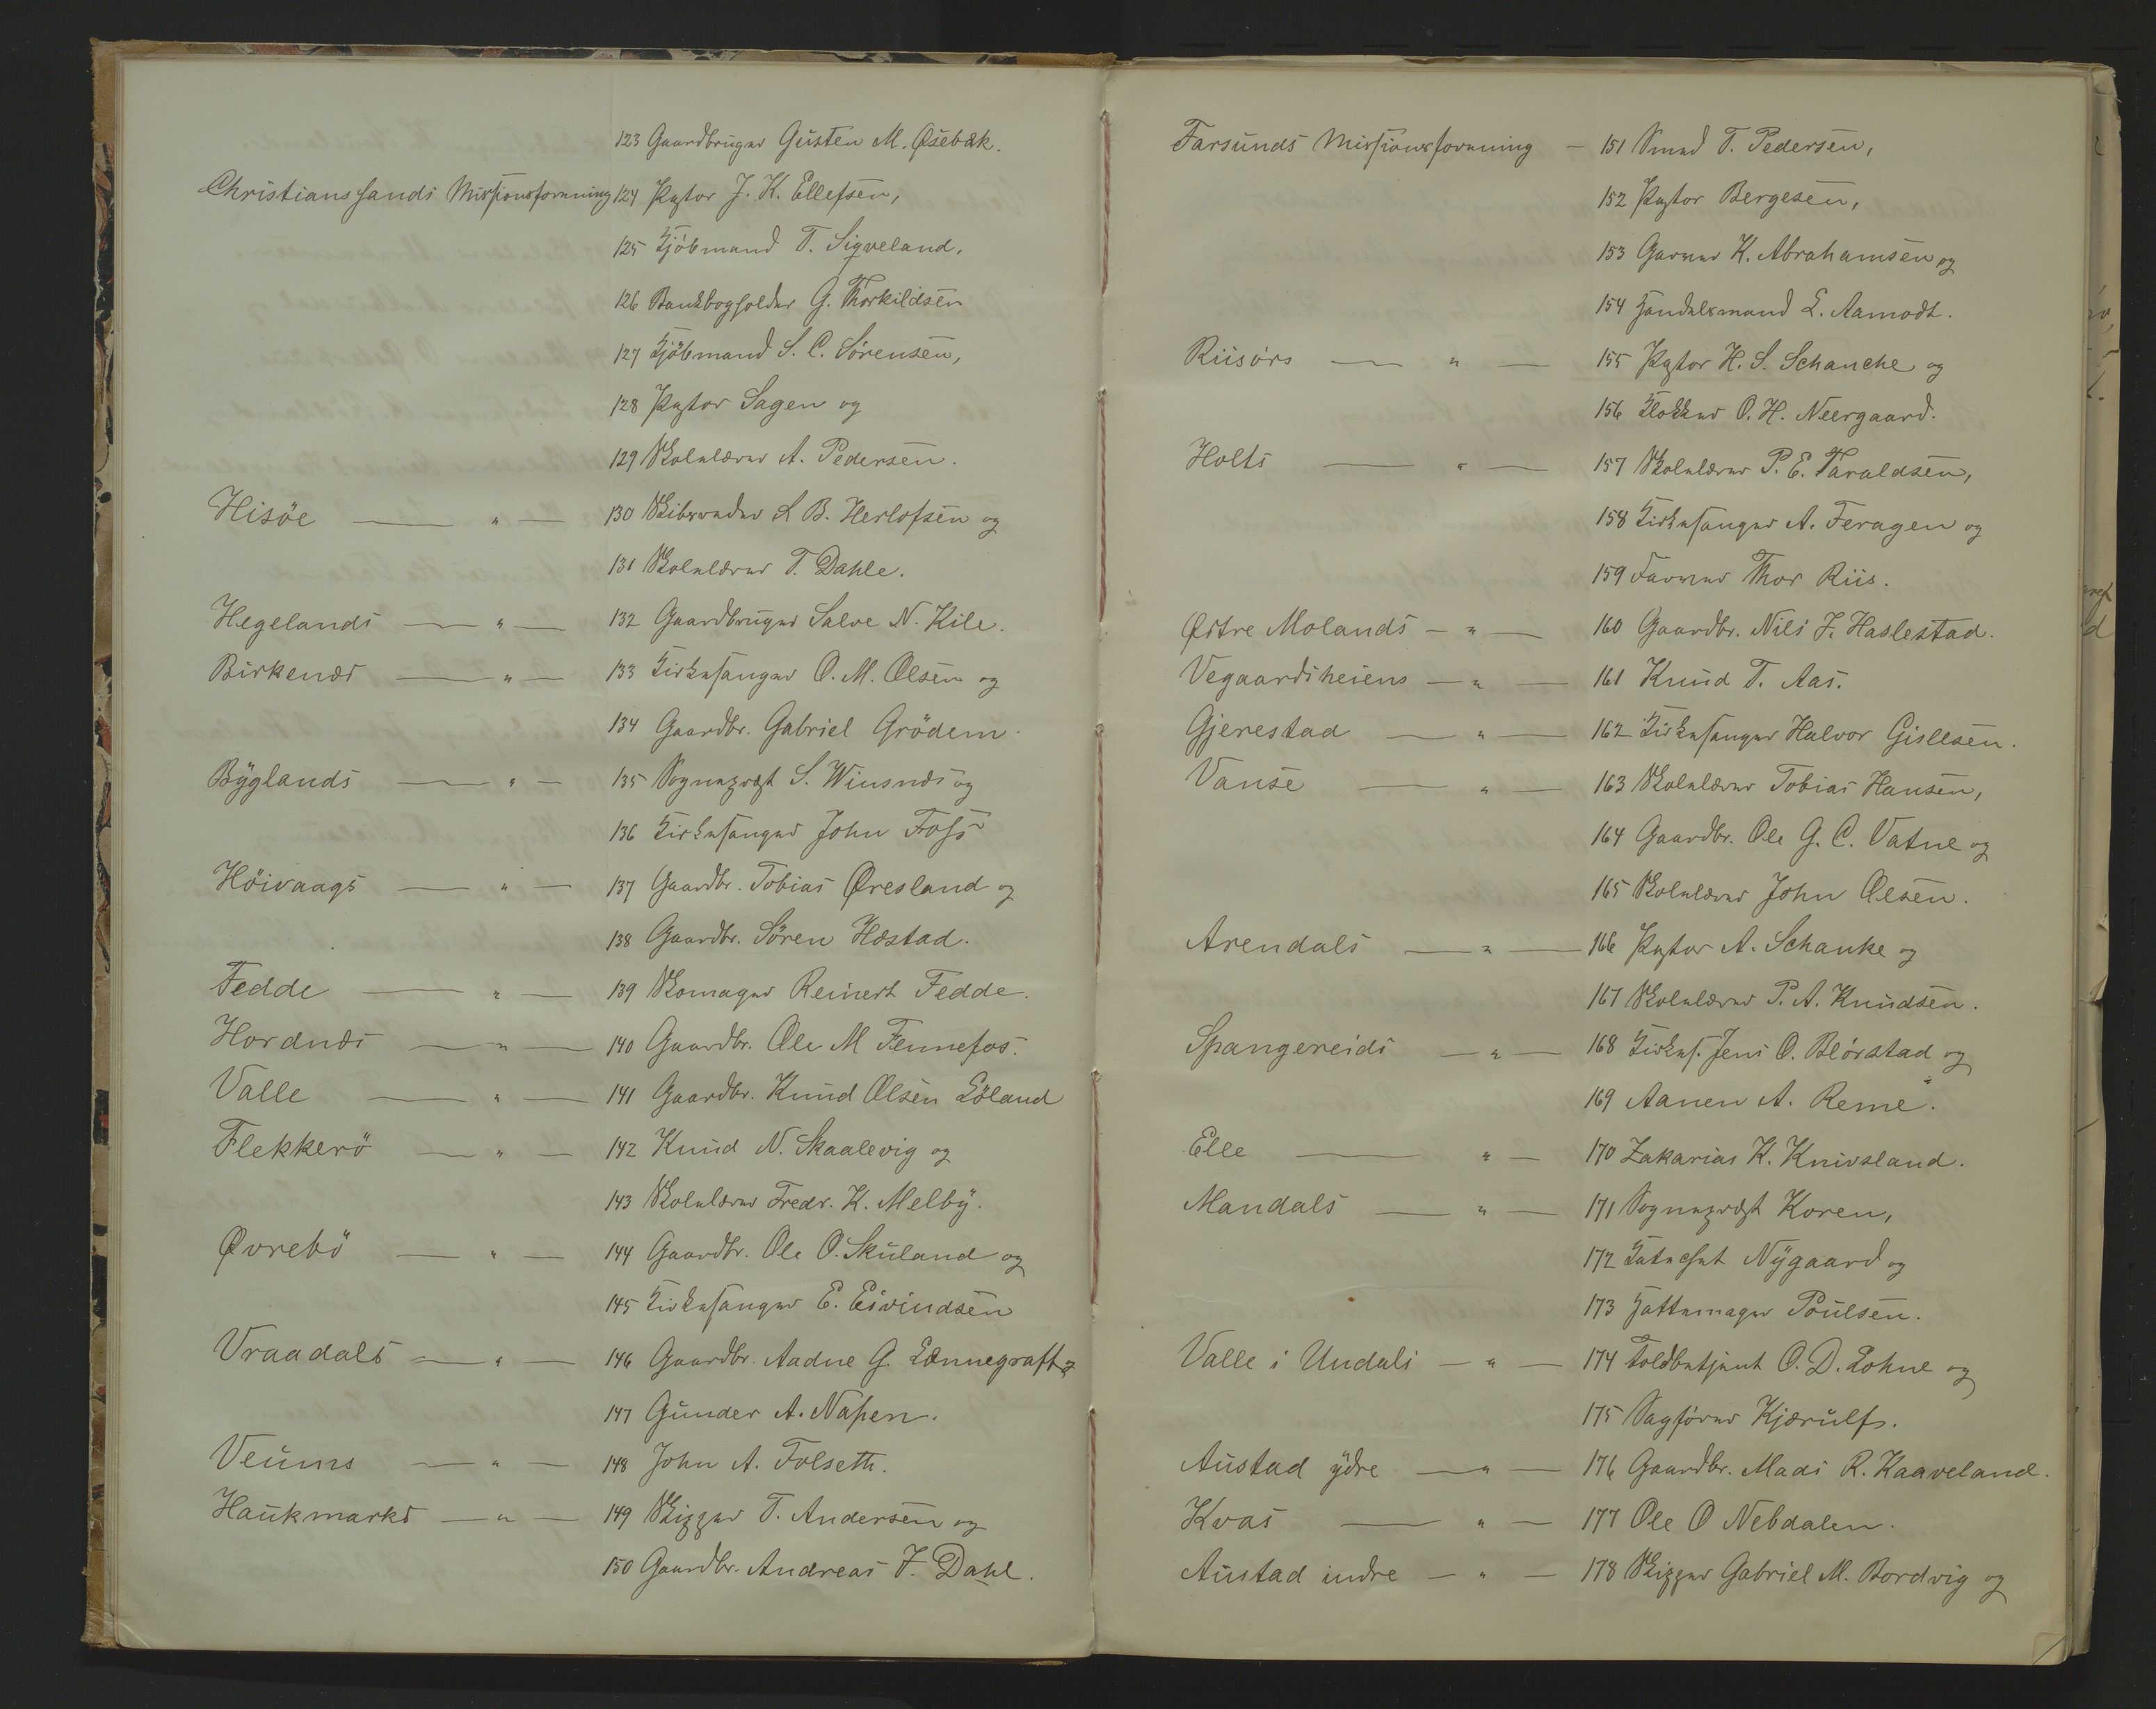 123 Gaardbruger Gusten M. Øsebæk.
Christianssands Missionsforening 124 Pastor J. K. Ellefsen,
125 Kjöbmand T. Sigveland,
126 Bankbogholder G. Thorkildsen
127 Kjöbmand S. C. Sörensen,
128 Pastor Sagen og
129 Skolelærer A. Pedersen.
Hisöe — " — 130 Skibsreder L B. Herlofsen og
131 Skolelærer T. Dahle.
Hegelands — " — 132 Gaardbruger Salve N. Kile.
Birkenæs — " — 133 Kirkesanger O. M. Olsen og
134 Gaardbr. Gabriel Grödem.
Byglands — " — 135 Sognepræst S. Wiusnæs og
136 Kirkesanger John Foss
Höivaags — " — 137 Gaardbr. Tobias Øresland og
138 Gaardbr. Sören Hæstad.
Fedde — " — 139 Skomager Reinert Fedde.
Hordnæs — " — 140 Gaardbr. Ole M Fennefos.
Valle — " — 141 Gaardbr. Knud Olsen Löland
Flekkerö — " — 142 Knud N. Skaalevig og
143 Skolelærer Fredr. K. Melby.
Øvrebö — " — 144 Gaardbr. Ole O. Skuland og
145 Kirkesanger E. Eivindsen
Vraadals — " — 146 Gaardbr. Aadne G. Lønnegraft &
147 Gunder A. Napen.
Veums — " — 148 John A. Folseth.
Haukmarks — " — 149 Skipper T. Andersen og
150 Gaardbr. Andreas J. Dahl.
Farsunds Missionsforening — 151 Smed T. Pedersen,
152 Pastor Bergesen,
153 Garver K. Abrahamsen og
154 Handelsmand L. Aamodt.
Riisörs — " — 155 Pastor H. S. Schanche og
156 Klokker O. H. Neergaard.
Holts — " — 157 Skolelærer P. E. Taraldsen,
158 Kirkesanger A. Feragen og
159 Farver Thor Riis.
Østre Molands — " — 160 Gaardbr. Nils J. Haslestad.
Vegaardsheiens — " — 161 Knud T. Aas.
Gjerestad — " — 162 Kirkesanger Halvor Gislesen.
Vanse — " — 163 Skolelærer Tobias Hansen,
164 Gaardbr. Ole G. C. Vatne og
165 Skolelærer John Olsen.
Arendals — " — 166 Pastor A. Schanke og
167 Skolelærer P. A. Knudsen.
Spangereids — " — 168 Kirkes. Jens O. Blörstad og
169 Aanen A. Reme.
Elle — " — 170 Zakarias K. Knivsland.
Mandals — " — 171 Sognepræst Koren,
172 Katechet Nygaard og
173 Hattemager Poulsen.
Valle i Undals — " — 174 Toldbetjent O. D. Lohne og
175 Sagförer Kjærulf.
Austad ydre — " — 176 Gaardbr. Mads R. Kaaveland.
Kvas — " — 177 Ole O Nebdalen.
Austad indre — " — 178 Skipper Gabriel M. Bordvig og